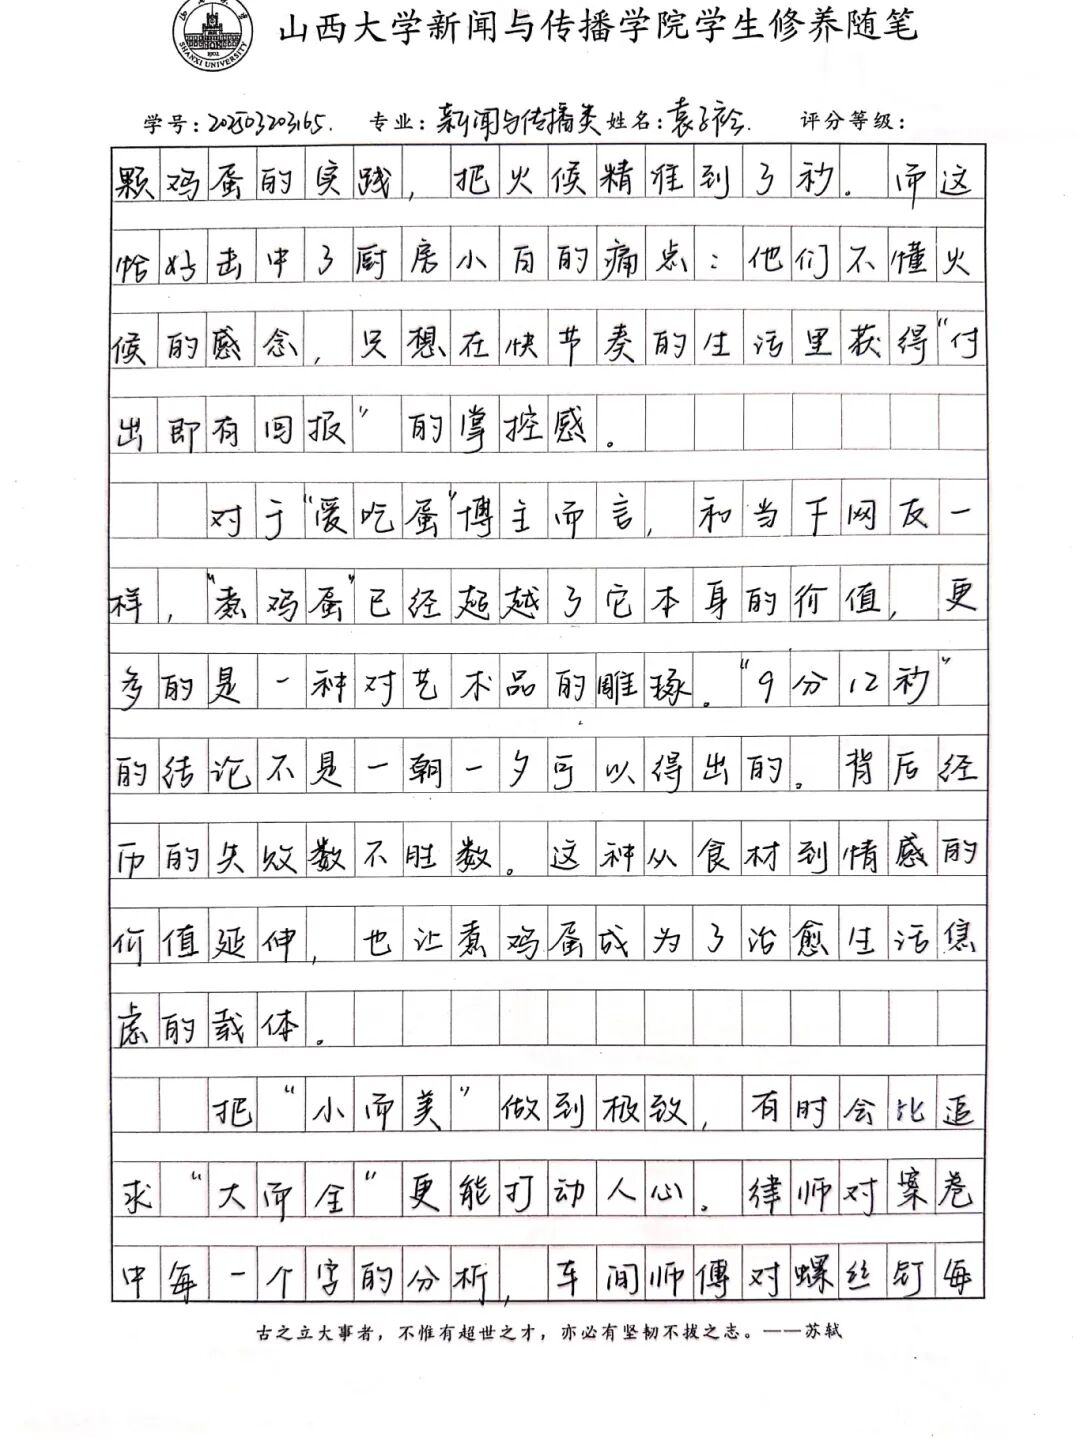 山西大学新闻与传播学院学生修养随笔
SHANXI UNIVERSITY
1902
学号：202503203165. 专业：新闻与传播类 姓名：袁子衿. 评分等级：
颗鸡蛋的实践，把火候精准到了秒。而这
恰好击中了厨房小白的痛点：他们不懂火
候的感念，只想在快节奏的生活里获得“付
出即有回报”的掌控感。
对于“爱吃蛋”博主而言，和当下网友一
样，“煮鸡蛋”已经超越了它本身的价值，更
多的是一种对艺术品的雕琢。“9分12秒”
的结论不是一朝一夕可以得出的。背后经
历的失败数不胜数。这种从食材到情感的
价值延伸，也让煮鸡蛋成为了治愈生活焦
虑的载体。
把“小而美”做到极致，有时会比追
求“大而全”更能打动人心。律师对案卷
中每一个字的分析，车间师傅对螺丝钉每
古之立大事者，不惟有超世之才，亦必有坚韧不拔之志。——苏轼